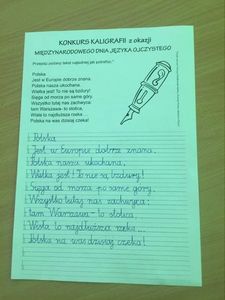 KONKURS KALIGRAFII z okazji
MIĘDZYNARODOWEGO DNIA JĘZYKA OJCZYSTEGO
Przepisz podany tekst najładniej jak potrafisz:
Polska
Jest w Europie dobrze znana.
Polska nasza ukochana.
Wielka jest! To nie są bzdury!
Sięga od morza po same góry.
Wszystko tutaj nas zachwyca:
tam Warszawa- to stolica,
Wisła to najdłuższa rzeka
Polska na was dzisiaj czeka!
Polska
Jest w Europie dobrze znana.
Polska nasza ukochana.
Wielka jest! To nie są bzdury!
Sięga od morza po same góry.
Wszystko tutaj nas zachwyca:
tam Warszawa - to stolica,
Wisła to najdłuższa rzeka...
Polska na was dzisiaj czeka!